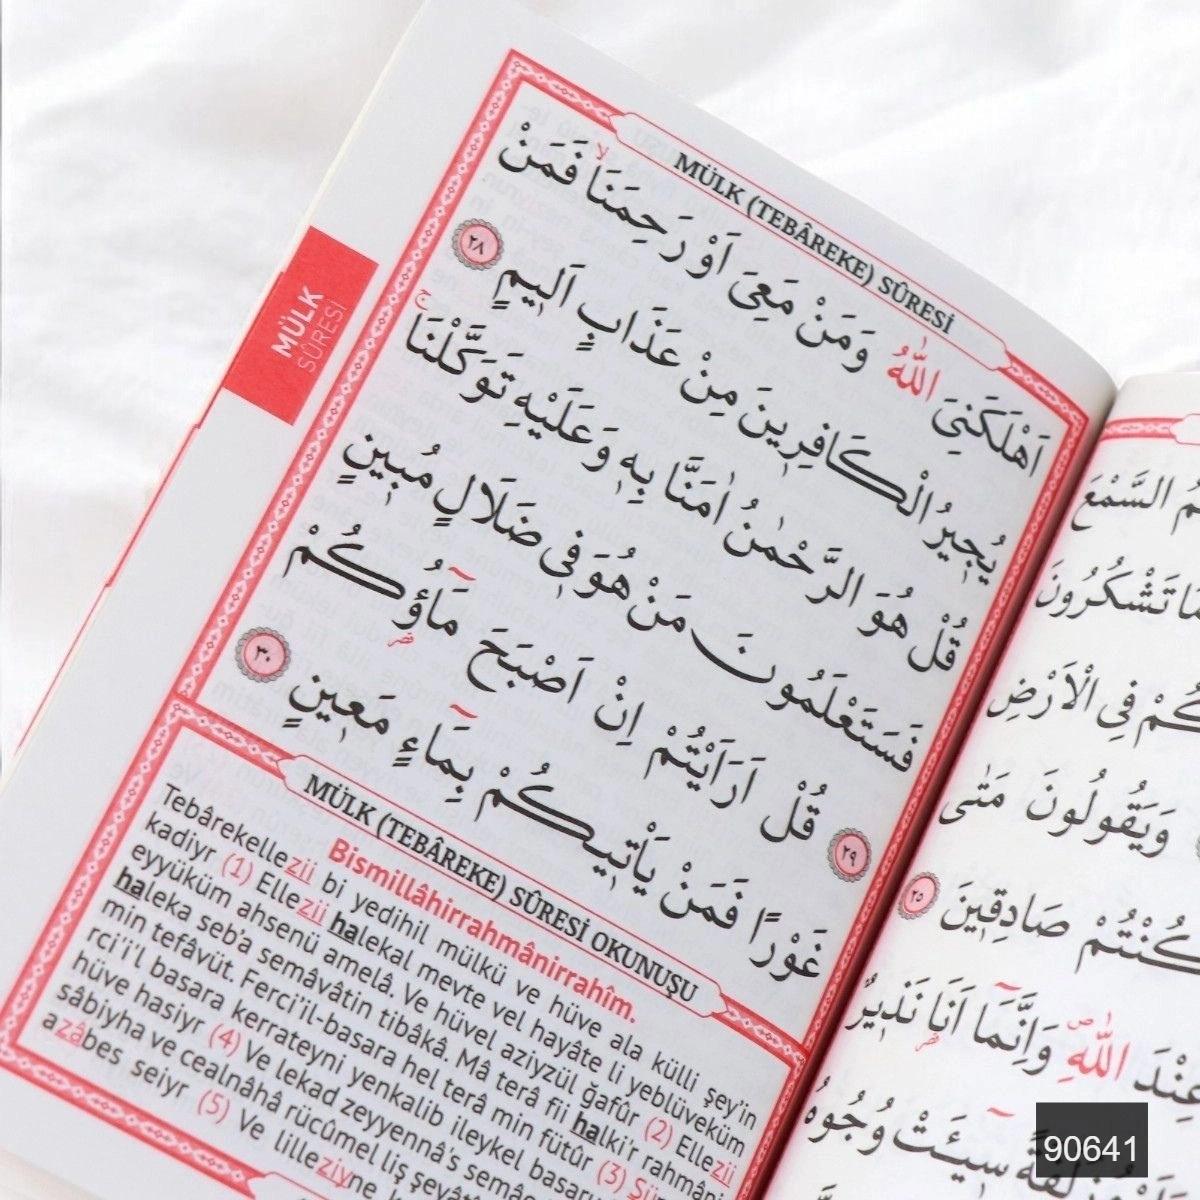 MÜLK
SÛRESİ
MÜLK (TEBÂREKE) SÛRESİ
اَهْلَكَنِىَ اللّٰهُ وَمَنْ مَعِىَ اَوْ رَحِمَنَاۙ فَمَنْ
يُجِيرُ الْكَافِرِينَ مِنْ عَذَابٍ اَلِيمٍ ٢٨
قُلْ هُوَ الرَّحْمٰنُ اٰمَنَّا بِهٖ وَعَلَيْهِ تَوَكَّلْنَاۚ
فَسَتَعْلَمُونَ مَنْ هُوَ فِى ضَلَالٍ مُبِينٍ
٢٩ قُلْ اَرَاَيْتُمْ اِنْ اَصْبَحَ مَٓاؤُ۬كُمْ
غَوْرًا فَمَنْ يَأْتِيكُمْ بِمَٓاءٍ مَعِينٍ ٣٠
MÜLK (TEBÂREKE) SÛRESİ OKUNUŞU
Bismillâhirrahmânirrahîm.
Tebârekellezii bi yedihil mülkü ve hüve ala külli şey'in
kadiyr (1) Ellezii halekal mevte vel hayâte li yeblüveküm
eyyüküm ahsenü amelâ. Ve hüvel aziyzül ğafûr (2) Ellezii
haleka seb'a semâvâtin tibâkâ. Mâ terâ fii halki'r rahmâni
min tefâvüt. Ferci'il-basara hel terâ min fütûr (3) Sü
rci'i'l basara kerrateyni yenkalib ileykel basaru
hüve hasiyr (4) Ve lekad zeyyennâ's semâe
sâbiyha ve cealnâhâ rücûmel liş şeyâtî
azâbes seiyr (5) Ve lilleziyne k
مُ السَّمْعَ
مَا تَشْكُرُونَ
كُمْ فِى الْاَرْضِ
وَيَقُولُونَ مَتٰى
كُنْتُمْ صَادِقِينَ ٢٥
عِنْدَ اللّٰهِࣕ وَاِنَّمَٓا اَنَا۬ نَذِيرٌ
زُلْفَةً سِٓيئَتْ وُجُوهُ
90641